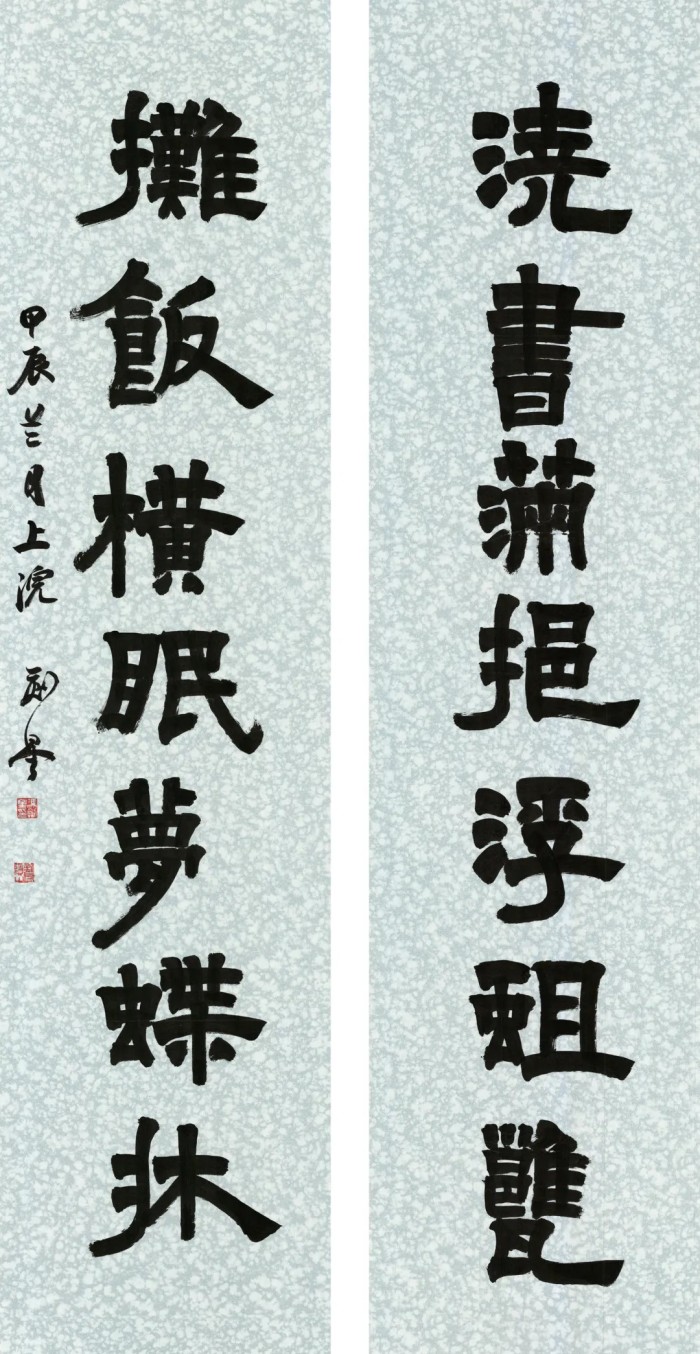 浇書滿挹浮蛆甕
攤飯橫眠夢蝶牀
甲辰兰月上浣